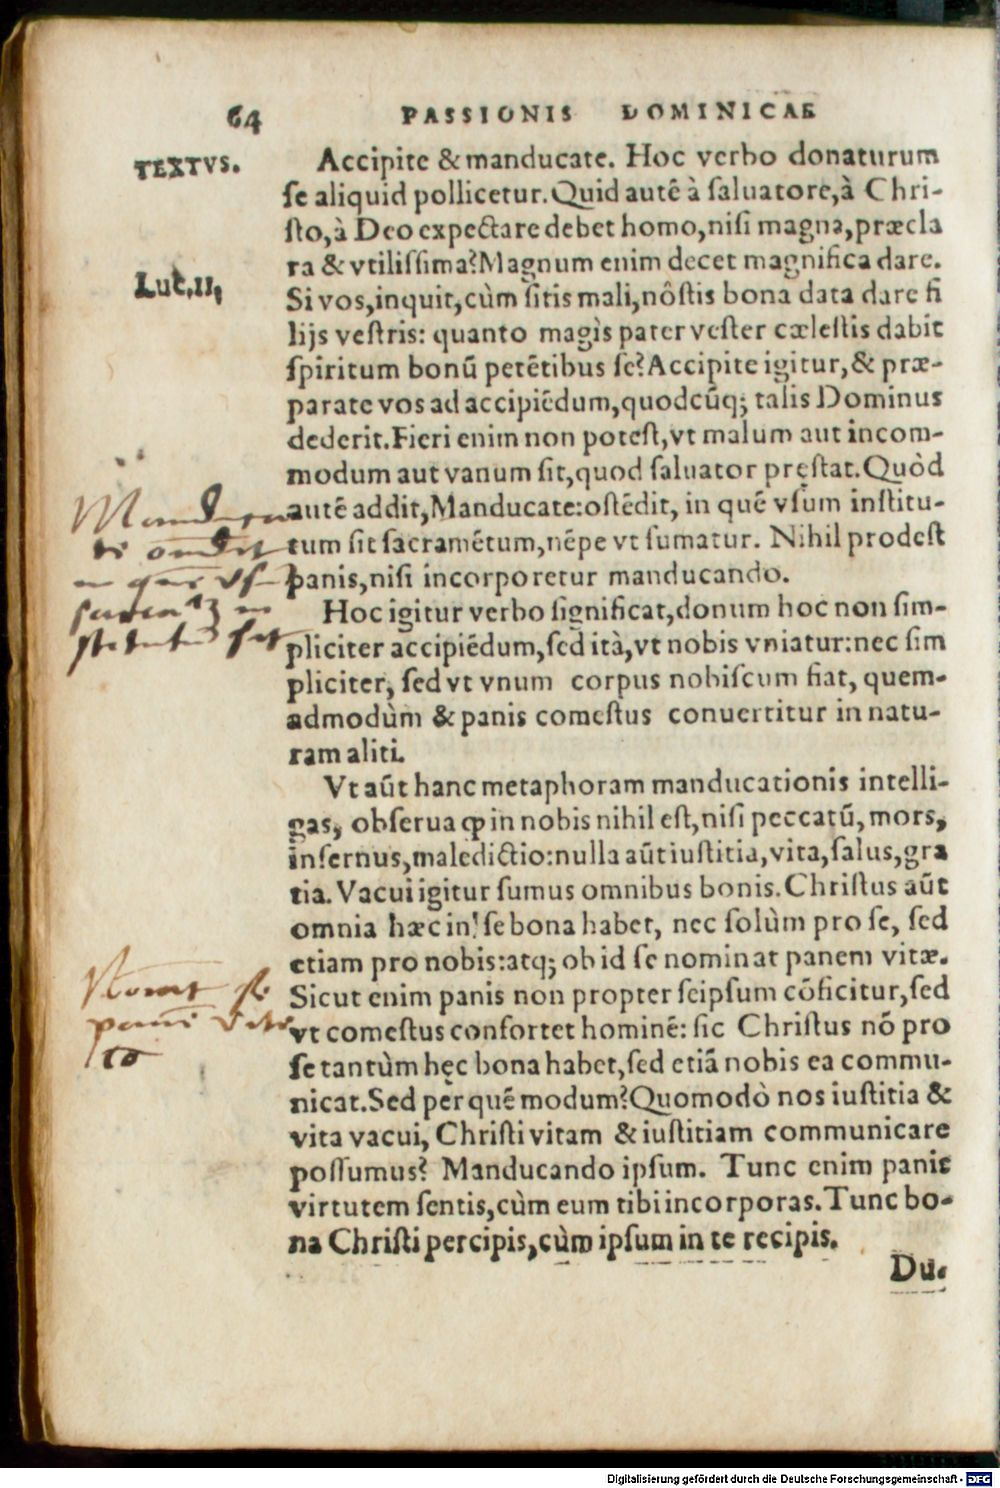 64
PASSIONIS DOMINICAE
TEXTVS.
Accipite & manducate. Hoc verbo donaturum
se aliquid pollicetur. Quid autē à saluatore, à Chri-
sto, à Deo expectare debet homo, nisi magna, præcla
ra & vtilissima? Magnum enim decet magnifica dare.
Luc. 11,
Si vos, inquit, cùm sitis mali, nôstis bona data dare fi
lijs vestris: quanto magìs pater vester cælestis dabit
spiritum bonū petētibus se? Accipite igitur, & præ-
parate vos ad accipiēdum, quodcūq; talis Dominus
dederit. Fieri enim non potest, vt malum aut incom-
modum aut vanum sit, quod saluator pręstat. Quòd
autē addit, Manducate: ostēdit, in quē vsum institu-
tum sit sacramētum, nēpe vt sumatur. Nihil prodest
panis, nisi incorporetur manducando.
Hoc igitur verbo significat, donum hoc non sim-
pliciter accipiēdum, sed ità, vt nobis vniatur: nec sim
pliciter, sed vt vnum corpus nobiscum fiat, quem-
admodùm & panis comestus conuertitur in natu-
ram aliti.
Vt aūt hanc metaphoram manducationis intelli-
gas, obserua ꝙ in nobis nihil est, nisi peccatū, mors,
infernus, maledictio: nulla aūt iustitia, vita, salus, gra
tia. Vacui igitur sumus omnibus bonis. Christus aūt
omnia hæc in se bona habet, nec solùm pro se, sed
etiam pro nobis: atq; ob id se nominat panem vitæ.
Sicut enim panis non propter seipsum cōficitur, sed
vt comestus confortet hominē: sic Christus nō pro
se tantùm hęc bona habet, sed etiā nobis ea commu-
nicat. Sed per quē modum? Quomodò nos iustitia &
vita vacui, Christi vitam & iustitiam communicare
possumus? Manducando ipsum. Tunc enim panis
virtutem sentis, cùm eum tibi incorporas. Tunc bo-
na Christi percipis, cùm ipsum in te recipis.
Du-
Digitalisierung gefördert durch die Deutsche Forschungsgemeinschaft - DFG